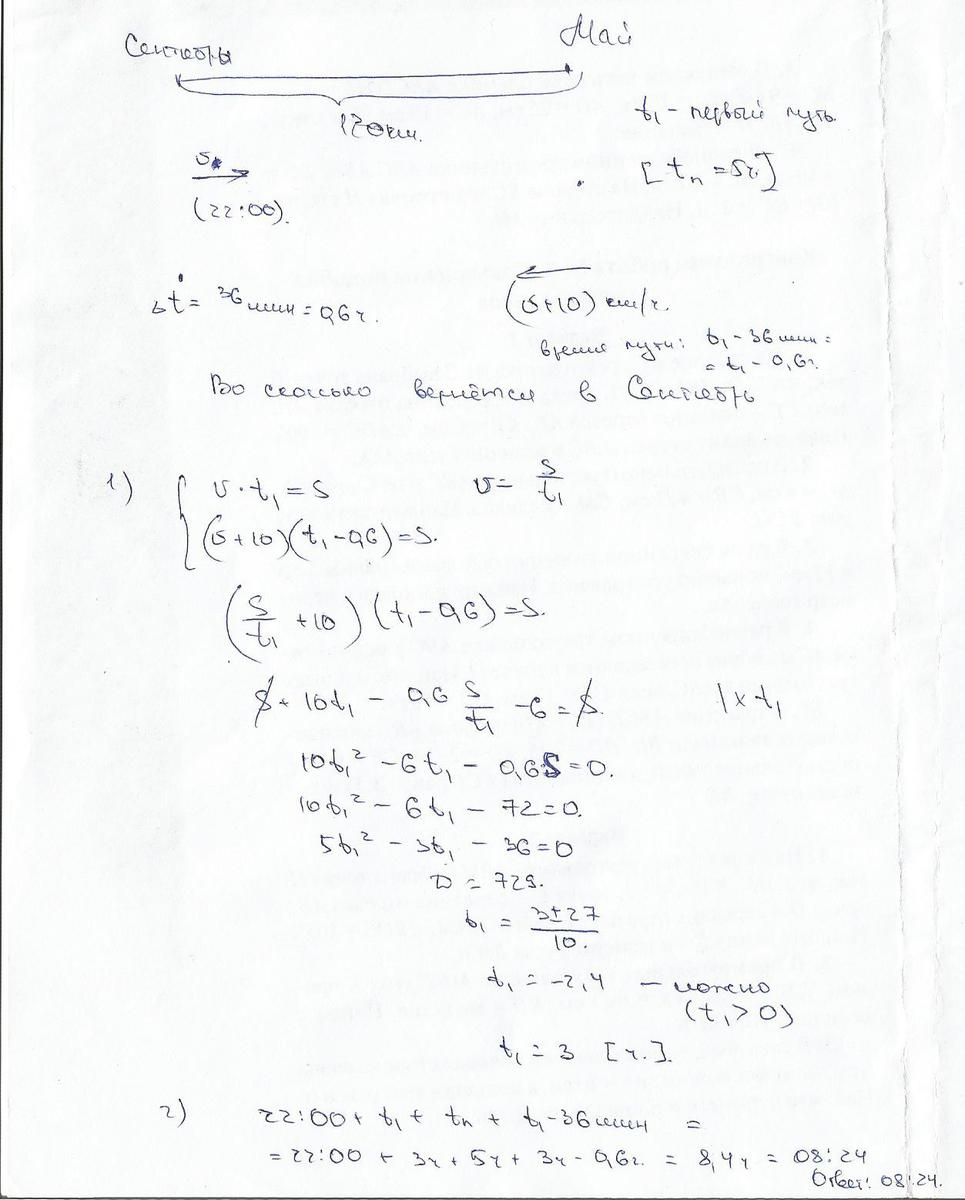 Сентябрь Май
120км.
t₁ – первый путь.
v
[tп = 5ч.]
(22:00).
Δt = 36 мин = 0,6 ч.
(v+10) км/ч.
время пути: t₁ – 36 мин =
= t₁ – 0,6ч.
Во сколько вернётся в Сентябрь
1) { v · t₁ = S v = S/t₁
(v+10)(t₁ – 0,6) = S.
(S/t₁ + 10)(t₁ – 0,6) = S.
S + 10t₁ – 0,6 S/t₁ – 6 = S. | × t₁
10t₁² – 6t₁ – 0,6S = 0.
10t₁² – 6t₁ – 72 = 0.
5t₁² – 3t₁ – 36 = 0
D = 729.
t₁ = (3 ± 27)/10.
t₁ = –2,4 – ложно
(t₁ > 0)
t₁ = 3 [ч.].
2) 22:00 + t₁ + tп + t₁ – 36 мин =
= 22:00 + 3ч + 5ч + 3ч – 0,6ч. = 8,4ч = 08:24
Ответ: 08:24.